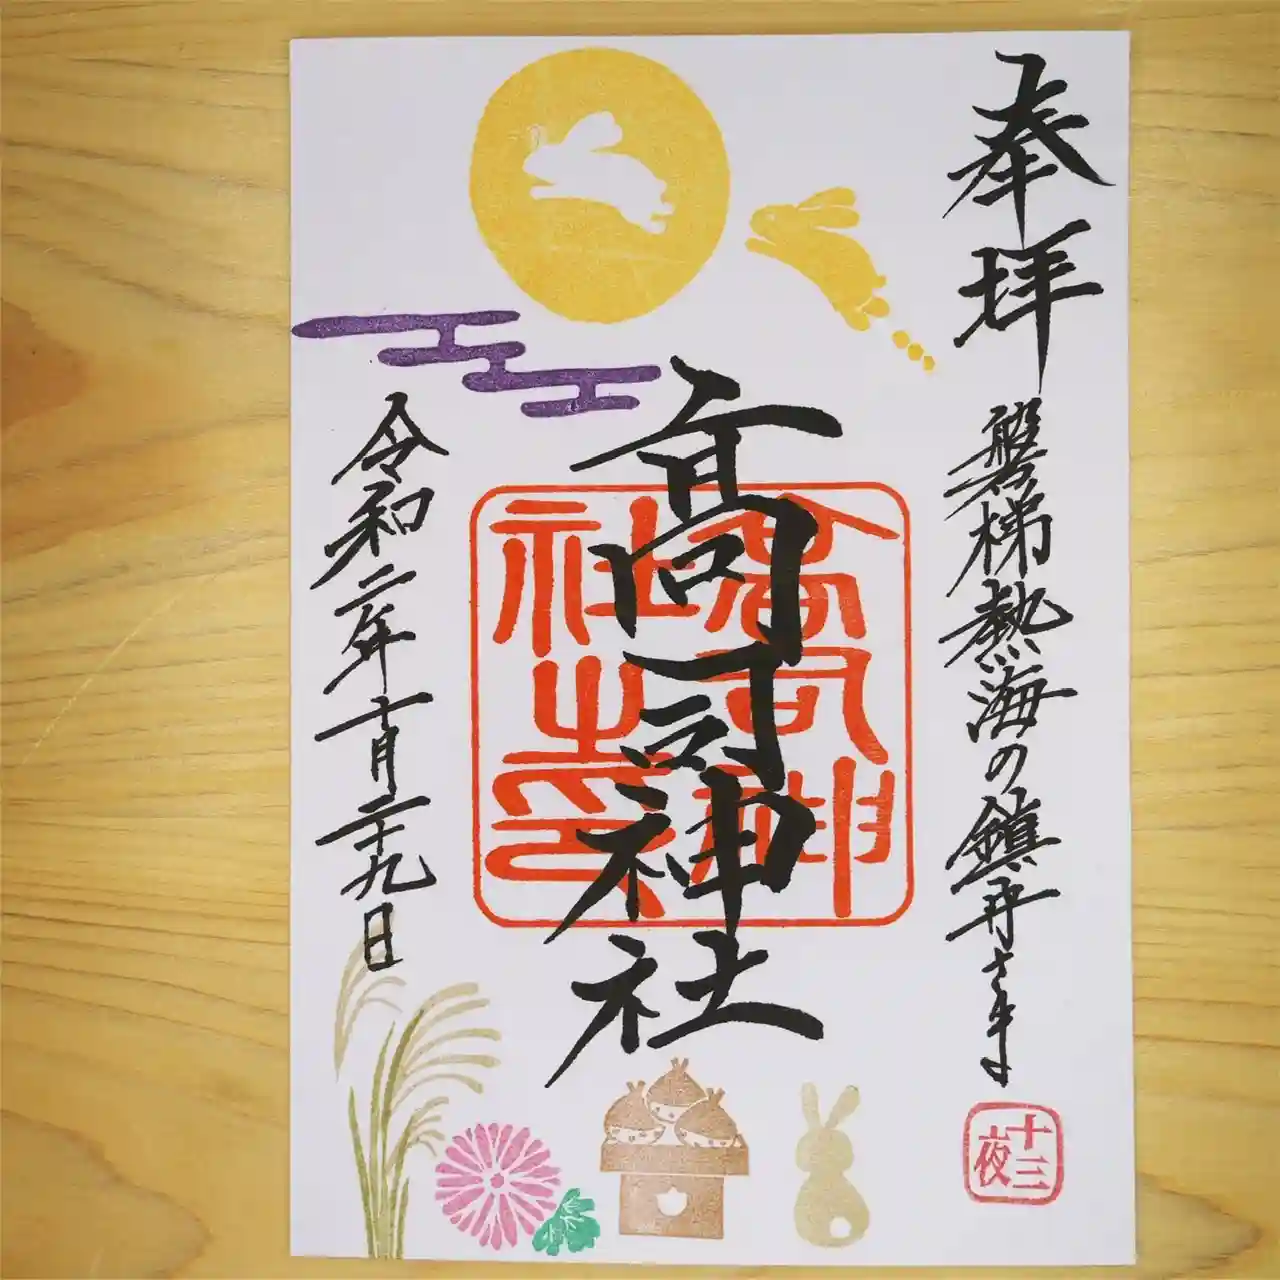 奉拝
磐梯熱海の鎮守さま
十三夜
高司神社
高司神社之印
令和二年十月二十九日